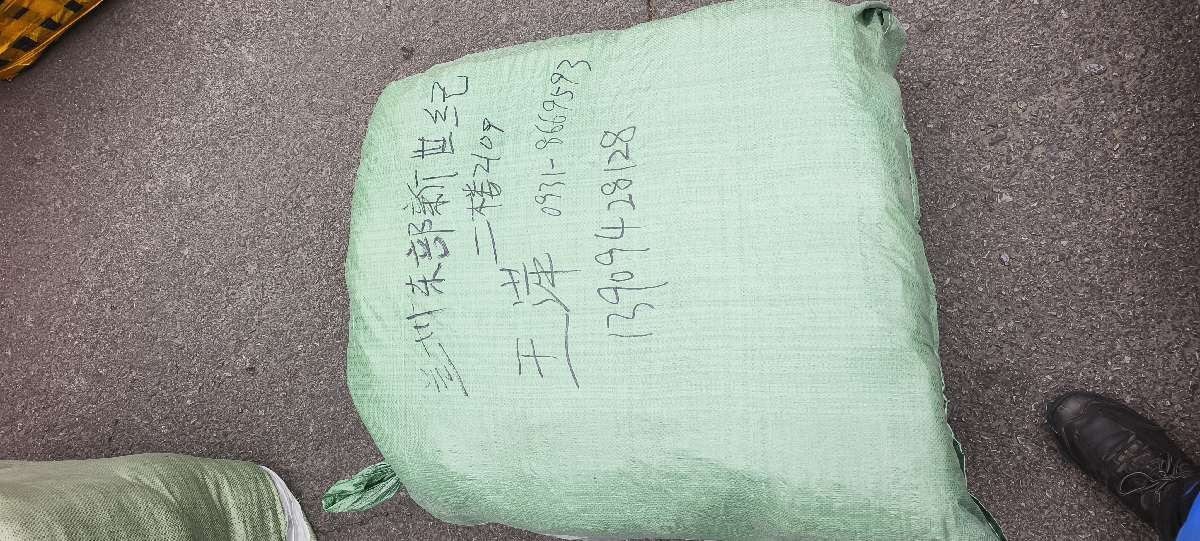 兰州东部新世纪
二楼2109
王萍 0931-8669593
13909428128